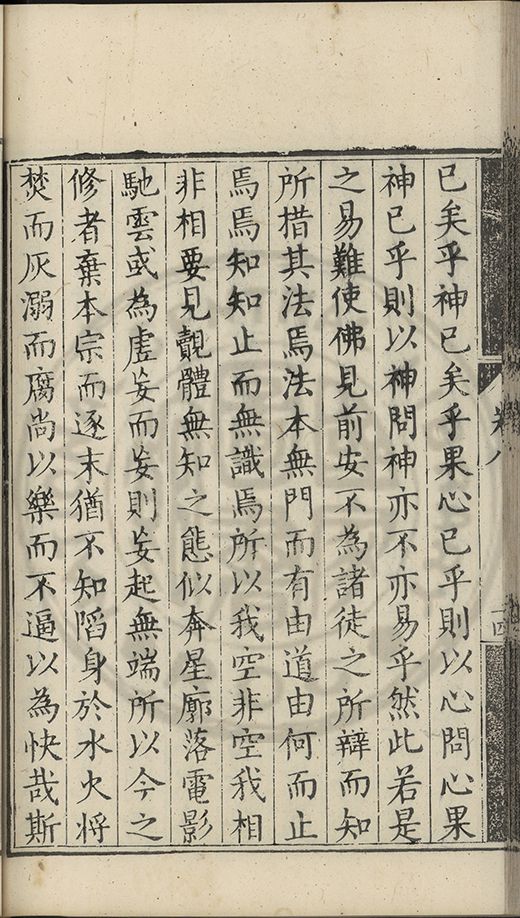 已矣乎神已矣乎果心已乎則以心問心果
神已乎則以神問神亦不亦易乎然此若是
之易難使佛見前安不為諸徒之所辯而知
所措其法焉法本無門而有由道由何而止
焉焉知知止而無識焉所以我空非空我相
非相要見覿體無知之態似奔星廓落電影
馳雲或為虛妄而妄則妄起無端所以今之
修者棄本宗而逐末猶不知陷身於水火將
焚而灰溺而腐尚以樂而不逼以為快哉斯
卷八
十四